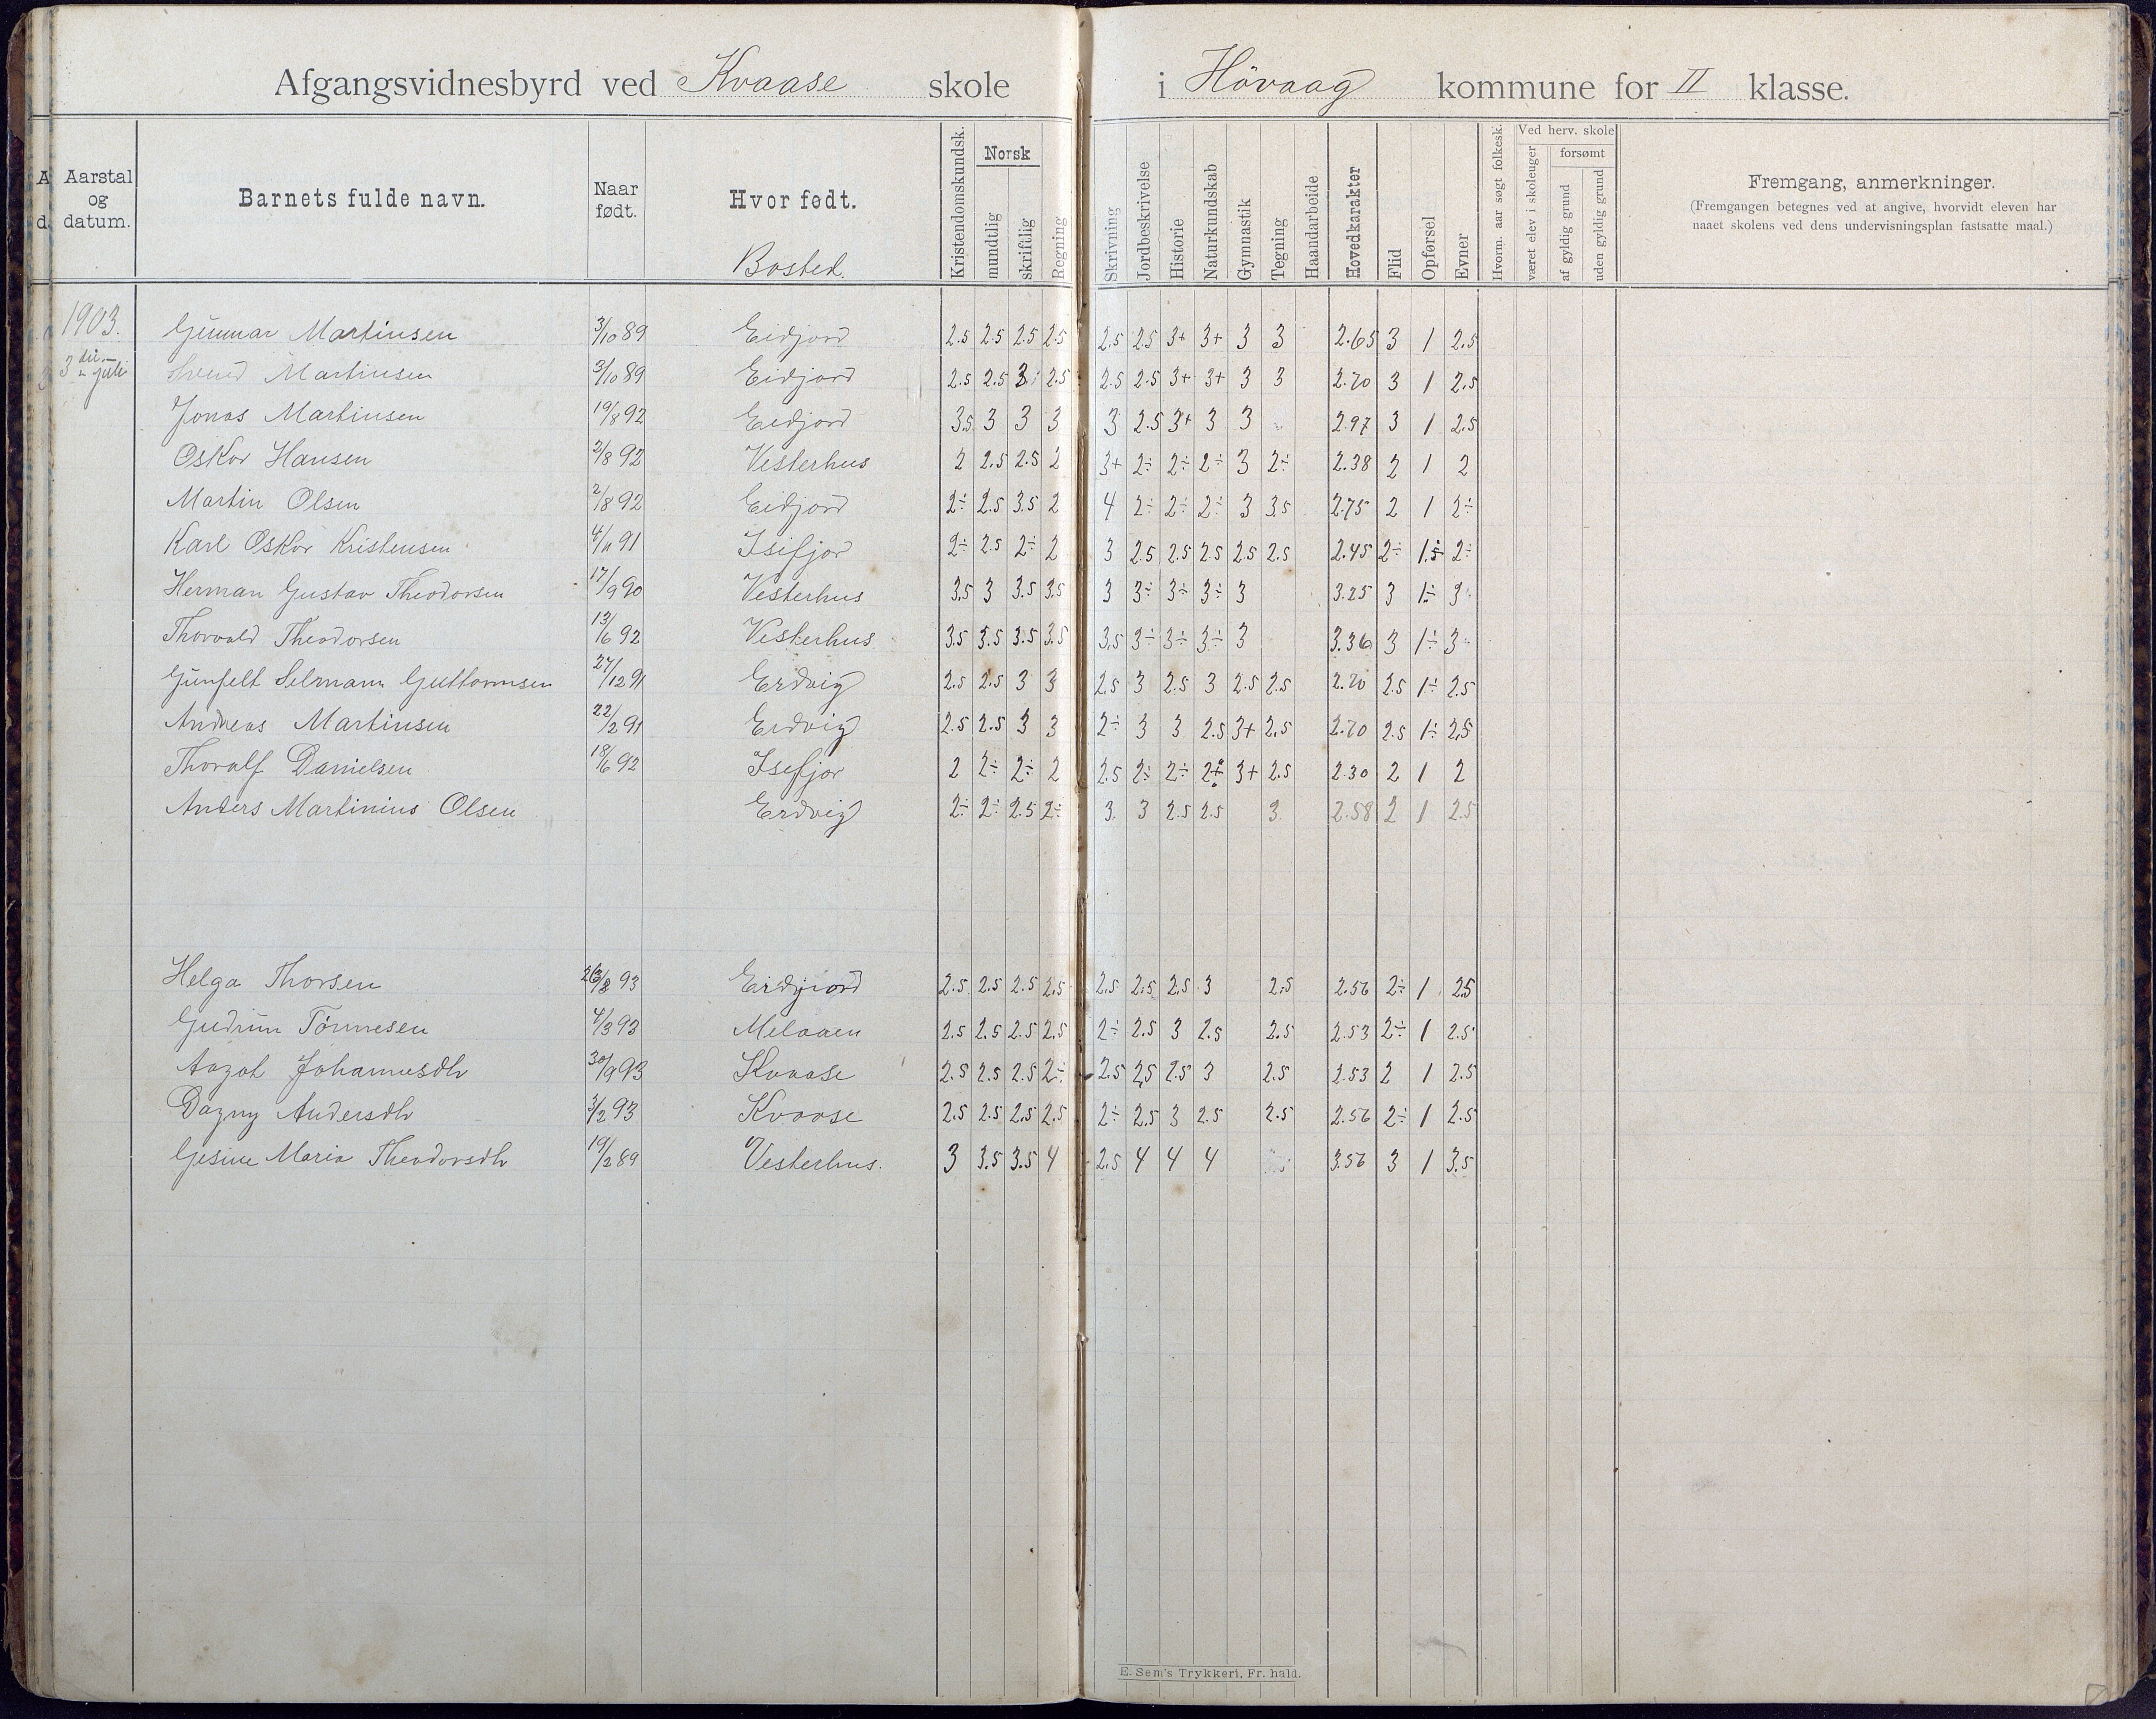 Afgangsvidnesbyrd ved Kvaase skole i Hövaag kommune for II klasse.
Aarstal og datum.
Barnets fulde navn.
Naar født.
Hvor født.
Bosted.
Kristendomskundsk.
Norsk
mundtlig
skriftlig
Regning
Skrivning
Jordbeskrivelse
Historie
Naturkundskab
Gymnastik
Tegning
Haandarbeide
Hovedkarakter
Flid
Opførsel
Evner
Hvorm. aar søgt folkesk.
Ved herv. skole
været elev i skoleuger
forsømt
af gyldig grund
uden gyldig grund
Fremgang, anmerkninger.
(Fremgangen betegnes ved at angive, hvorvidt eleven har
naaet skolens ved dens undervisningsplan fastsatte maal.)
1903. Gunnar Martinsen 3/10 89 Eidjord 2.5 2.5 2.5 2.5 2.5 2.5 3+ 3+ 3 3 2.65 3 1 2.5
3 juli Svend Martinsen 3/10 89 Eidjord 2.5 2.5 3 2.5 2.5 2.5 3+ 3+ 3 3 2.70 3 1 2.5
Jonas Martinsen 19/8 92 Eidjord 3.5 3 3 3 3 2.5 3+ 3 3 2.97 3 1 2.5
Oskar Hansen 2/8 92 Vesterhus 2 2.5 2.5 2 3+ 2÷ 2÷ 2÷ 3 2÷ 2.38 2 1 2
Martin Olsen 2/8 92 Eidjord 2÷ 2.5 3.5 2 4 2÷ 2÷ 2÷ 3 3.5 2.75 2 1 2÷
Karl Oskar Kristensen 91 Isifjor 2÷ 2.5 2÷ 2 3 2.5 2.5 2.5 2.5 2.5 2.45 2÷ 1.5 2÷
Herman Gustav Theodorsen 17/9 90 Vesterhus 3.5 3 3.5 3.5 3 3÷ 3÷ 3÷ 3 3.25 3 1÷ 3
Thorvald Theodorsen 13/6 92 Vesterhus 3.5 3.5 3.5 3.5 3.5 3÷ 3÷ 3÷ 3 3.36 3 1÷ 3
Gunfelt Selmann Guttormsen 27/12 91 Erdvig 2.5 2.5 3 3 2.5 3 2.5 3 2.5 2.5 2.70 2.5 1÷ 2.5
Andreas Martinsen 22/2 91 Erdvig 2.5 2.5 3 3 2÷ 3 3 2.5 3+ 2.5 2.70 2.5 1÷ 2.5
Thoralf Danielsen 18/6 92 Isefjor 2 2÷ 2÷ 2 2.5 2÷ 2÷ 2÷ 3+ 2.5 2.30 2 1 2
Anders Martinius Olsen Erdvig 2÷ 2÷ 2.5 2÷ 3. 3 2.5 2.5 3 2.58 2 1 2.5
Helga Thorsen 93 Erdjord 2.5 2.5 2.5 2.5 2.5 2.5 2.5 3 2.5 2.56 2÷ 1 2.5
Gudrun Tönnesen 4/3 93 Melaaen 2.5 2.5 2.5 2.5 2÷ 2.5 3 2.5 2.5 2.53 2÷ 1 2.5
Aagot Johannesdtr 30/9 93 Kvaase 2.5 2.5 2.5 2÷ 2.5 2.5 2.5 3 2.5 2.53 2 1 2.5
Dagny Andersdtr 3/2 93 Kvaase 2.5 2.5 2.5 2.5 2÷ 2.5 3 2.5 2.5 2.56 2÷ 1 2.5
Gesine Maria Theodorsdtr 19/2 89 Vesterhus. 3 3.5 3.5 4 2.5 4 4 4 3.56 3 1 3.5
E. Sem's Trykkeri, Fr. hald.